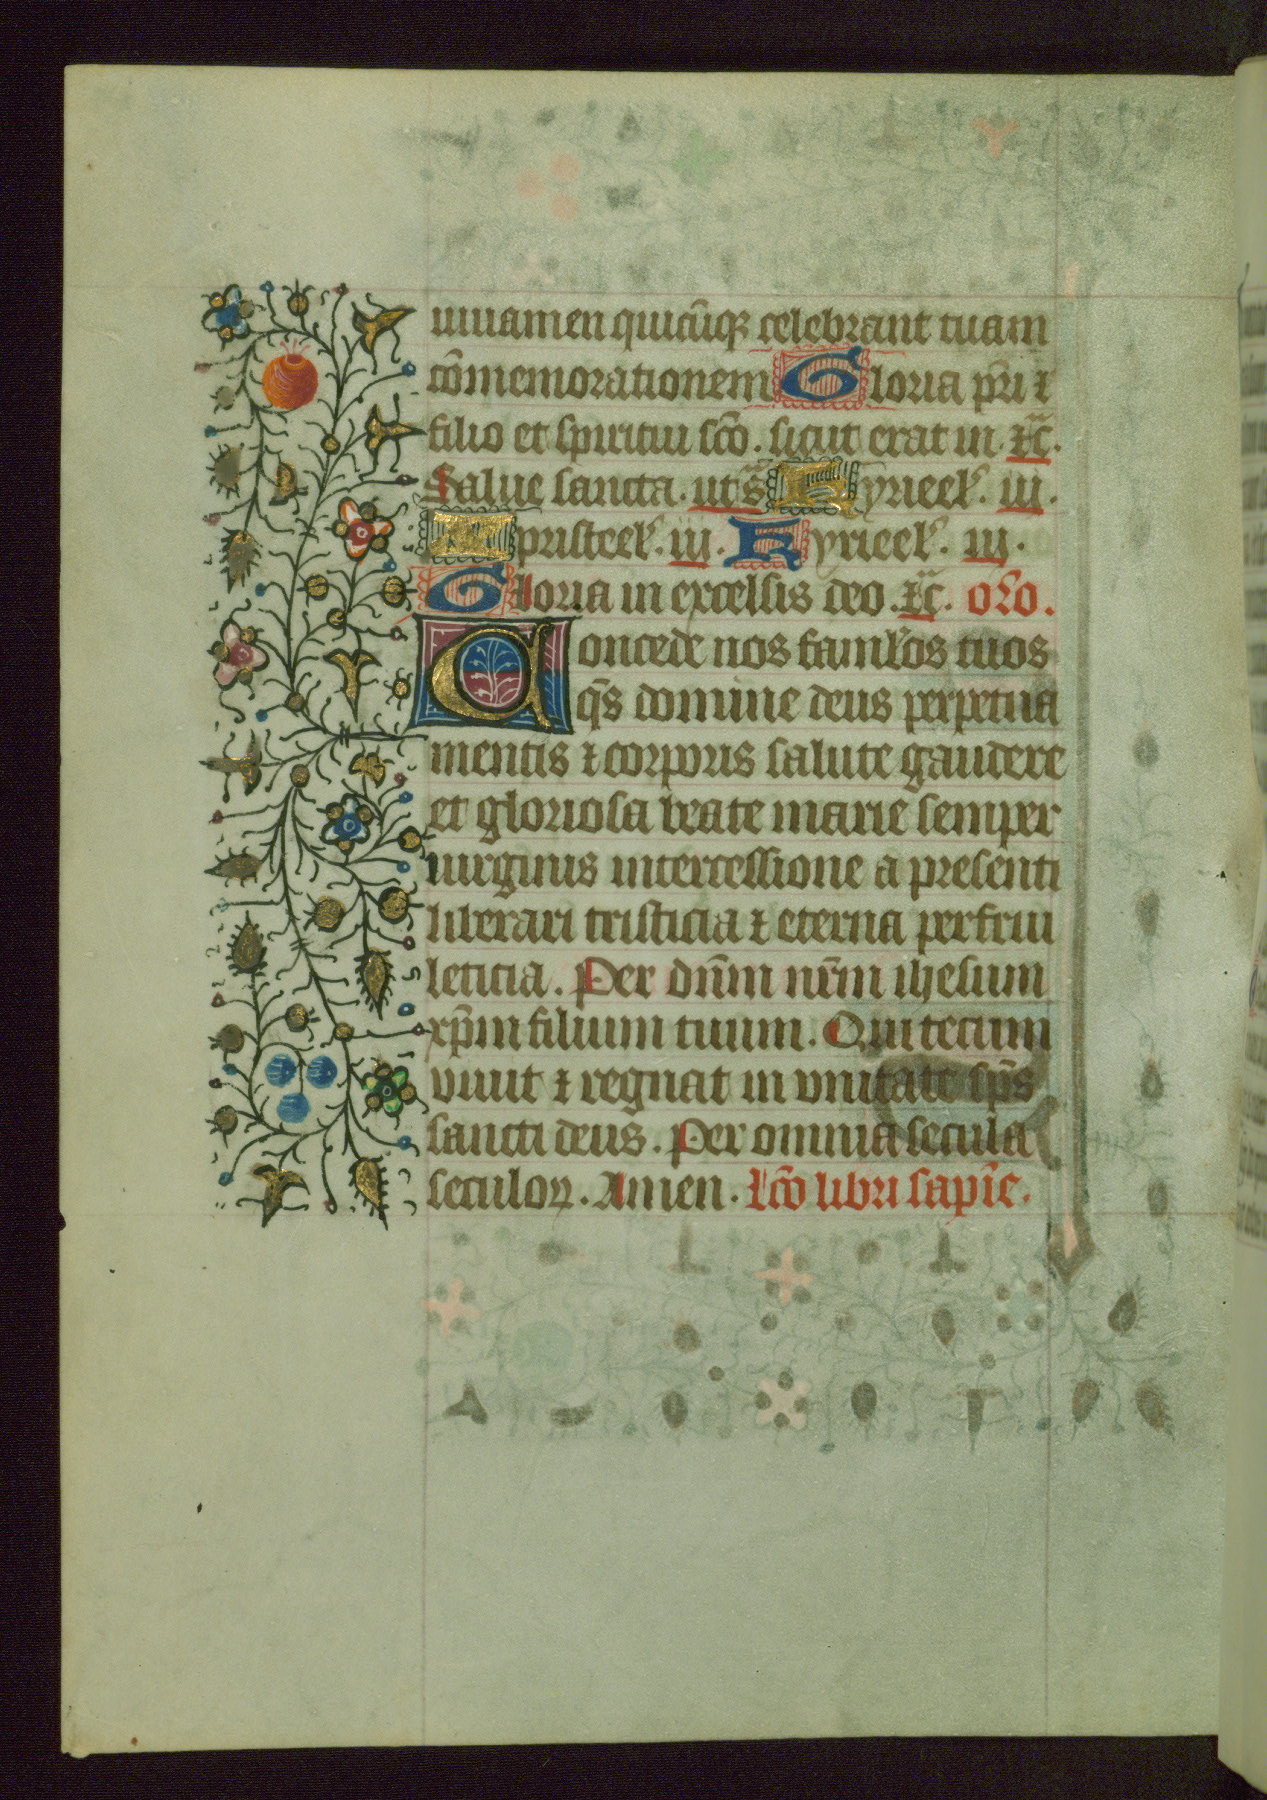 iuuamen quicūqꝫ celebrant tuam
cōmemorationem Gloria pr̄i ⁊
filio et spiritui sc̄o. sicut erat in. ⁊c̄.
Salue sancta. ut sͣ Kyrieel'. iii.
Xpristeel'. iii. Kyrieel'. iii.
Gloria in excelsis deo. ⁊c̄. or̄o.
Concede nos famlos tuos
qs̄ domine deus perpetua
mentis ⁊ corporis salute gaudere
et gloriosa beate marie semper
uirginis intercessione a presenti
liberari tristicia ⁊ eterna perfrui
leticia. Per dn̄m nr̄m ihesum
xp̄m filium tuum. Qui tecum
viuit ⁊ regnat in vnitate sp̄s
sancti deus. Per omnia secula
seculoꝝ. Amen. Lc̄o libri sapīe.